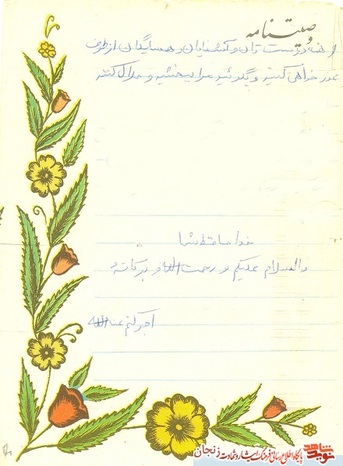 وصیتنامه
از همه دوستان و آشنایان و همسایگان از طرف
عذر خواهی کنید و بگوئید مرا ببخشید و حلال کنند
خدا حافظ شما
والسلام علیکم و رحمت الله و برکاته
اجرکم عندالله
نوید شاهد
پایگاه اطلاع رسانی فرهنگ ایثار و شهادت زنجان